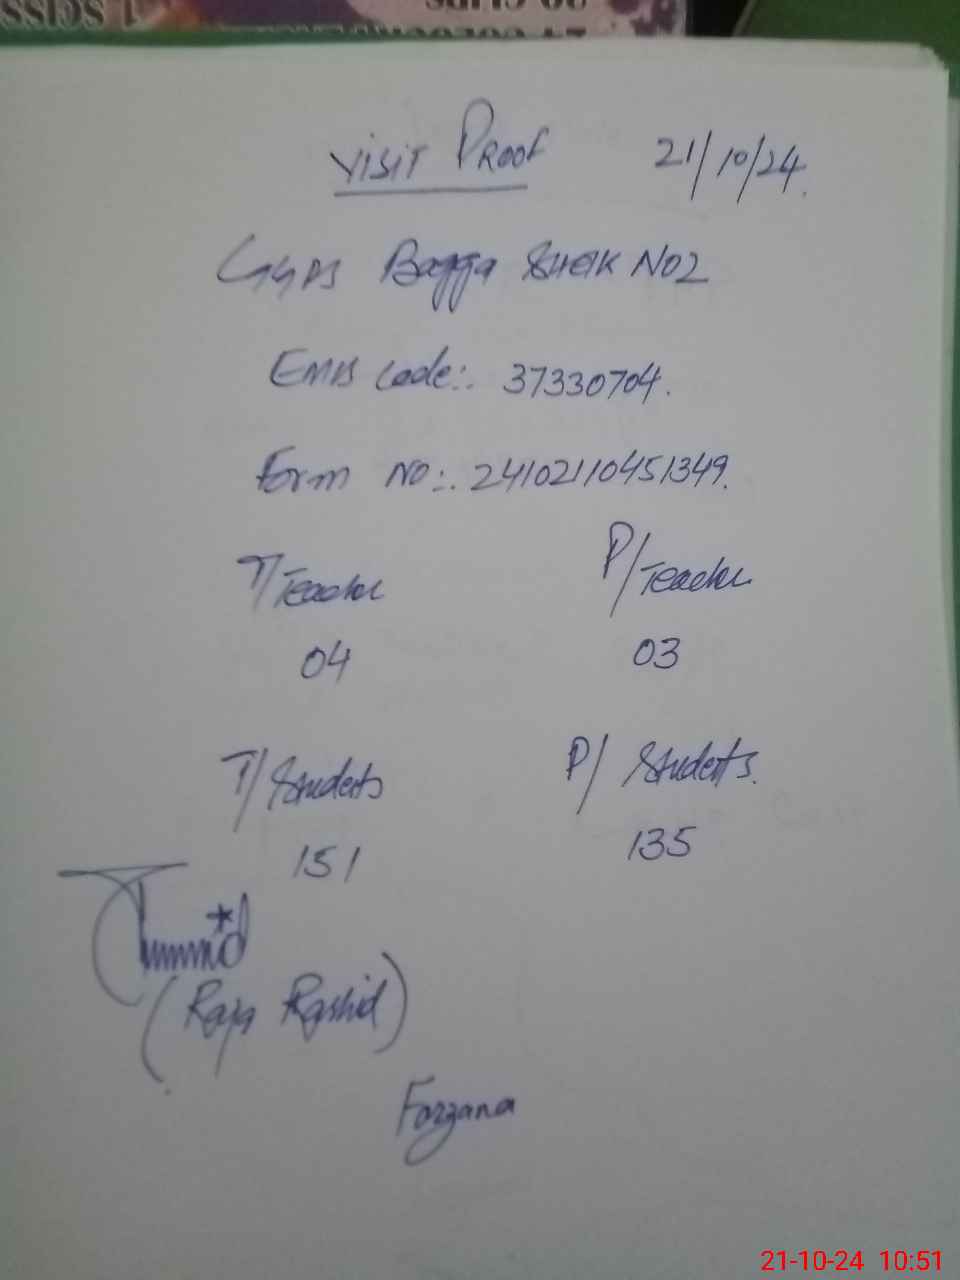 VISIT PROOF 21/10/24.
GGPS Bagga SHEIK NO2
EMIS code:. 37330704.
Form NO:. 24102110451349.
T/Teacher P/Teacher
04 03
T/Students P/Students.
151 135
(Raja Rashid)
Farzana
21-10-24 10:51